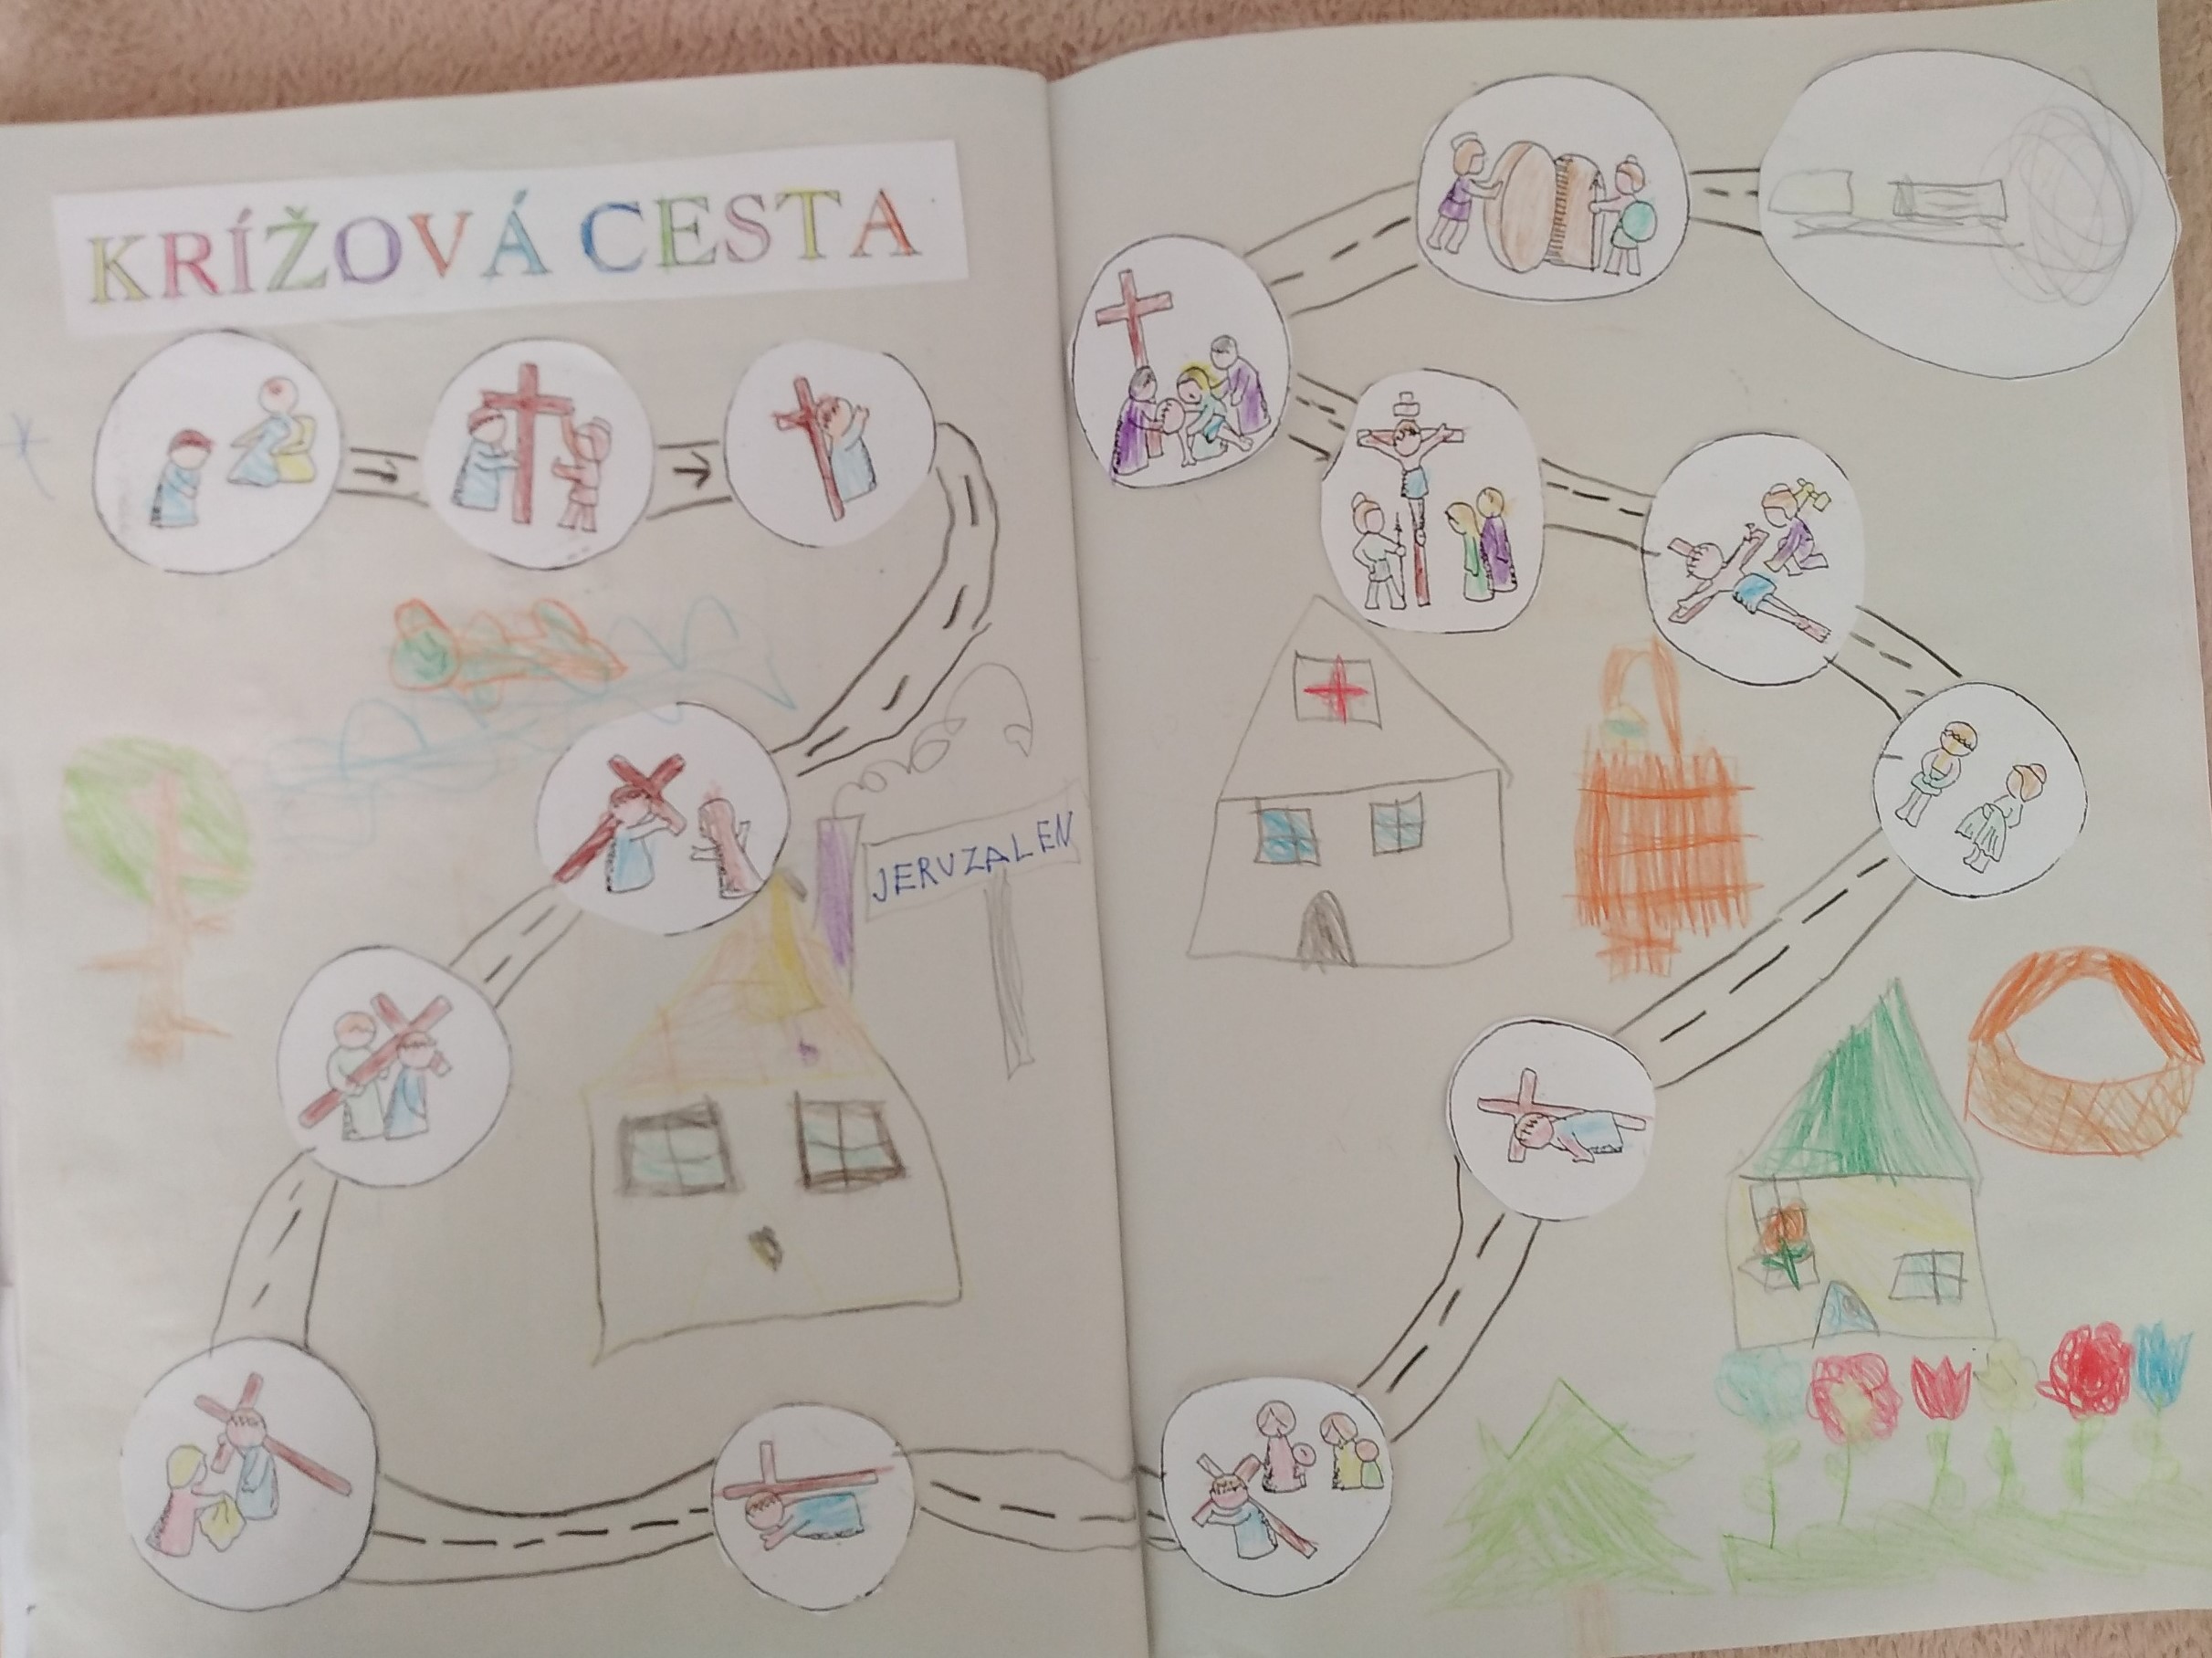 KRÍŽOVÁ CESTA
JERUZALEN